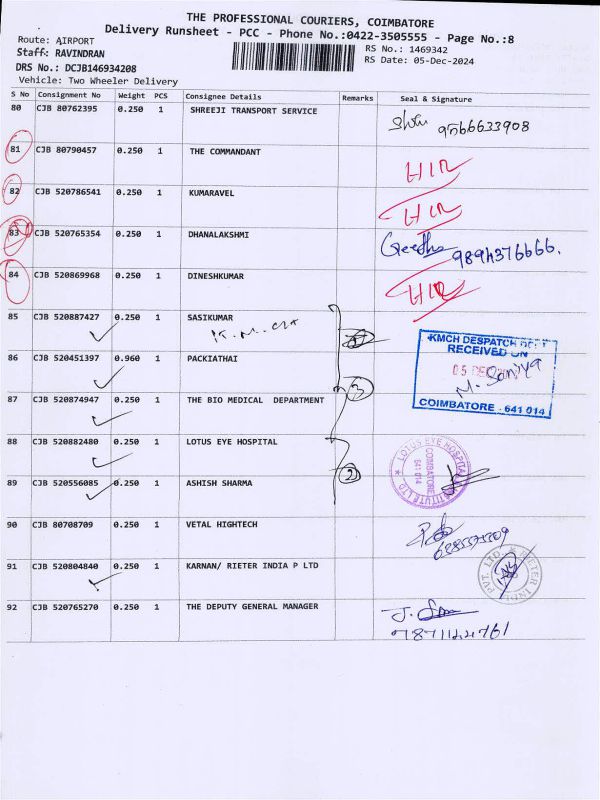 THE PROFESSIONAL COURIERS, COIMBATORE
Delivery Runsheet - PCC - Phone No.:0422-3505555 - Page No.:8
Route: AIRPORT
RS No.: 1469342
Staff: RAVINDRAN
RS Date: 05-Dec-2024
DRS No.: DCJB146934208
Vehicle: Two Wheeler Delivery
S No Consignment No Weight PCS Consignee Details Remarks Seal & Signature
80 CJB 80762395 0.250 1 SHREEJI TRANSPORT SERVICE
9566633908
81 CJB 80790457 0.250 1 THE COMMANDANT
82 CJB 520786541 0.250 1 KUMARAVEL
83 CJB 520765354 0.250 1 DHANALAKSHMI
Geetha 9894376666.
84 CJB 520869968 0.250 1 DINESHKUMAR
85 CJB 520887427 0.250 1 SASIKUMAR
86 CJB 520451397 0.960 1 PACKIATHAI
KMCH DESPATCH DEPT
RECEIVED ON
05 DEC
M. Saniya
COIMBATORE - 641 014
87 CJB 520874947 0.250 1 THE BIO MEDICAL DEPARTMENT
3
88 CJB 520882480 0.250 1 LOTUS EYE HOSPITAL
2
LOTUS EYE HOSPITAL
COIMBATORE
641 014
89 CJB 520556085 0.250 1 ASHISH SHARMA
90 CJB 80708709 0.250 1 VETAL HIGHTECH
91 CJB 520804840 0.250 1 KARNAN/ RIETER INDIA P LTD
RIETER INDIA PVT. LTD.
92 CJB 520765270 0.250 1 THE DEPUTY GENERAL MANAGER
7871144761